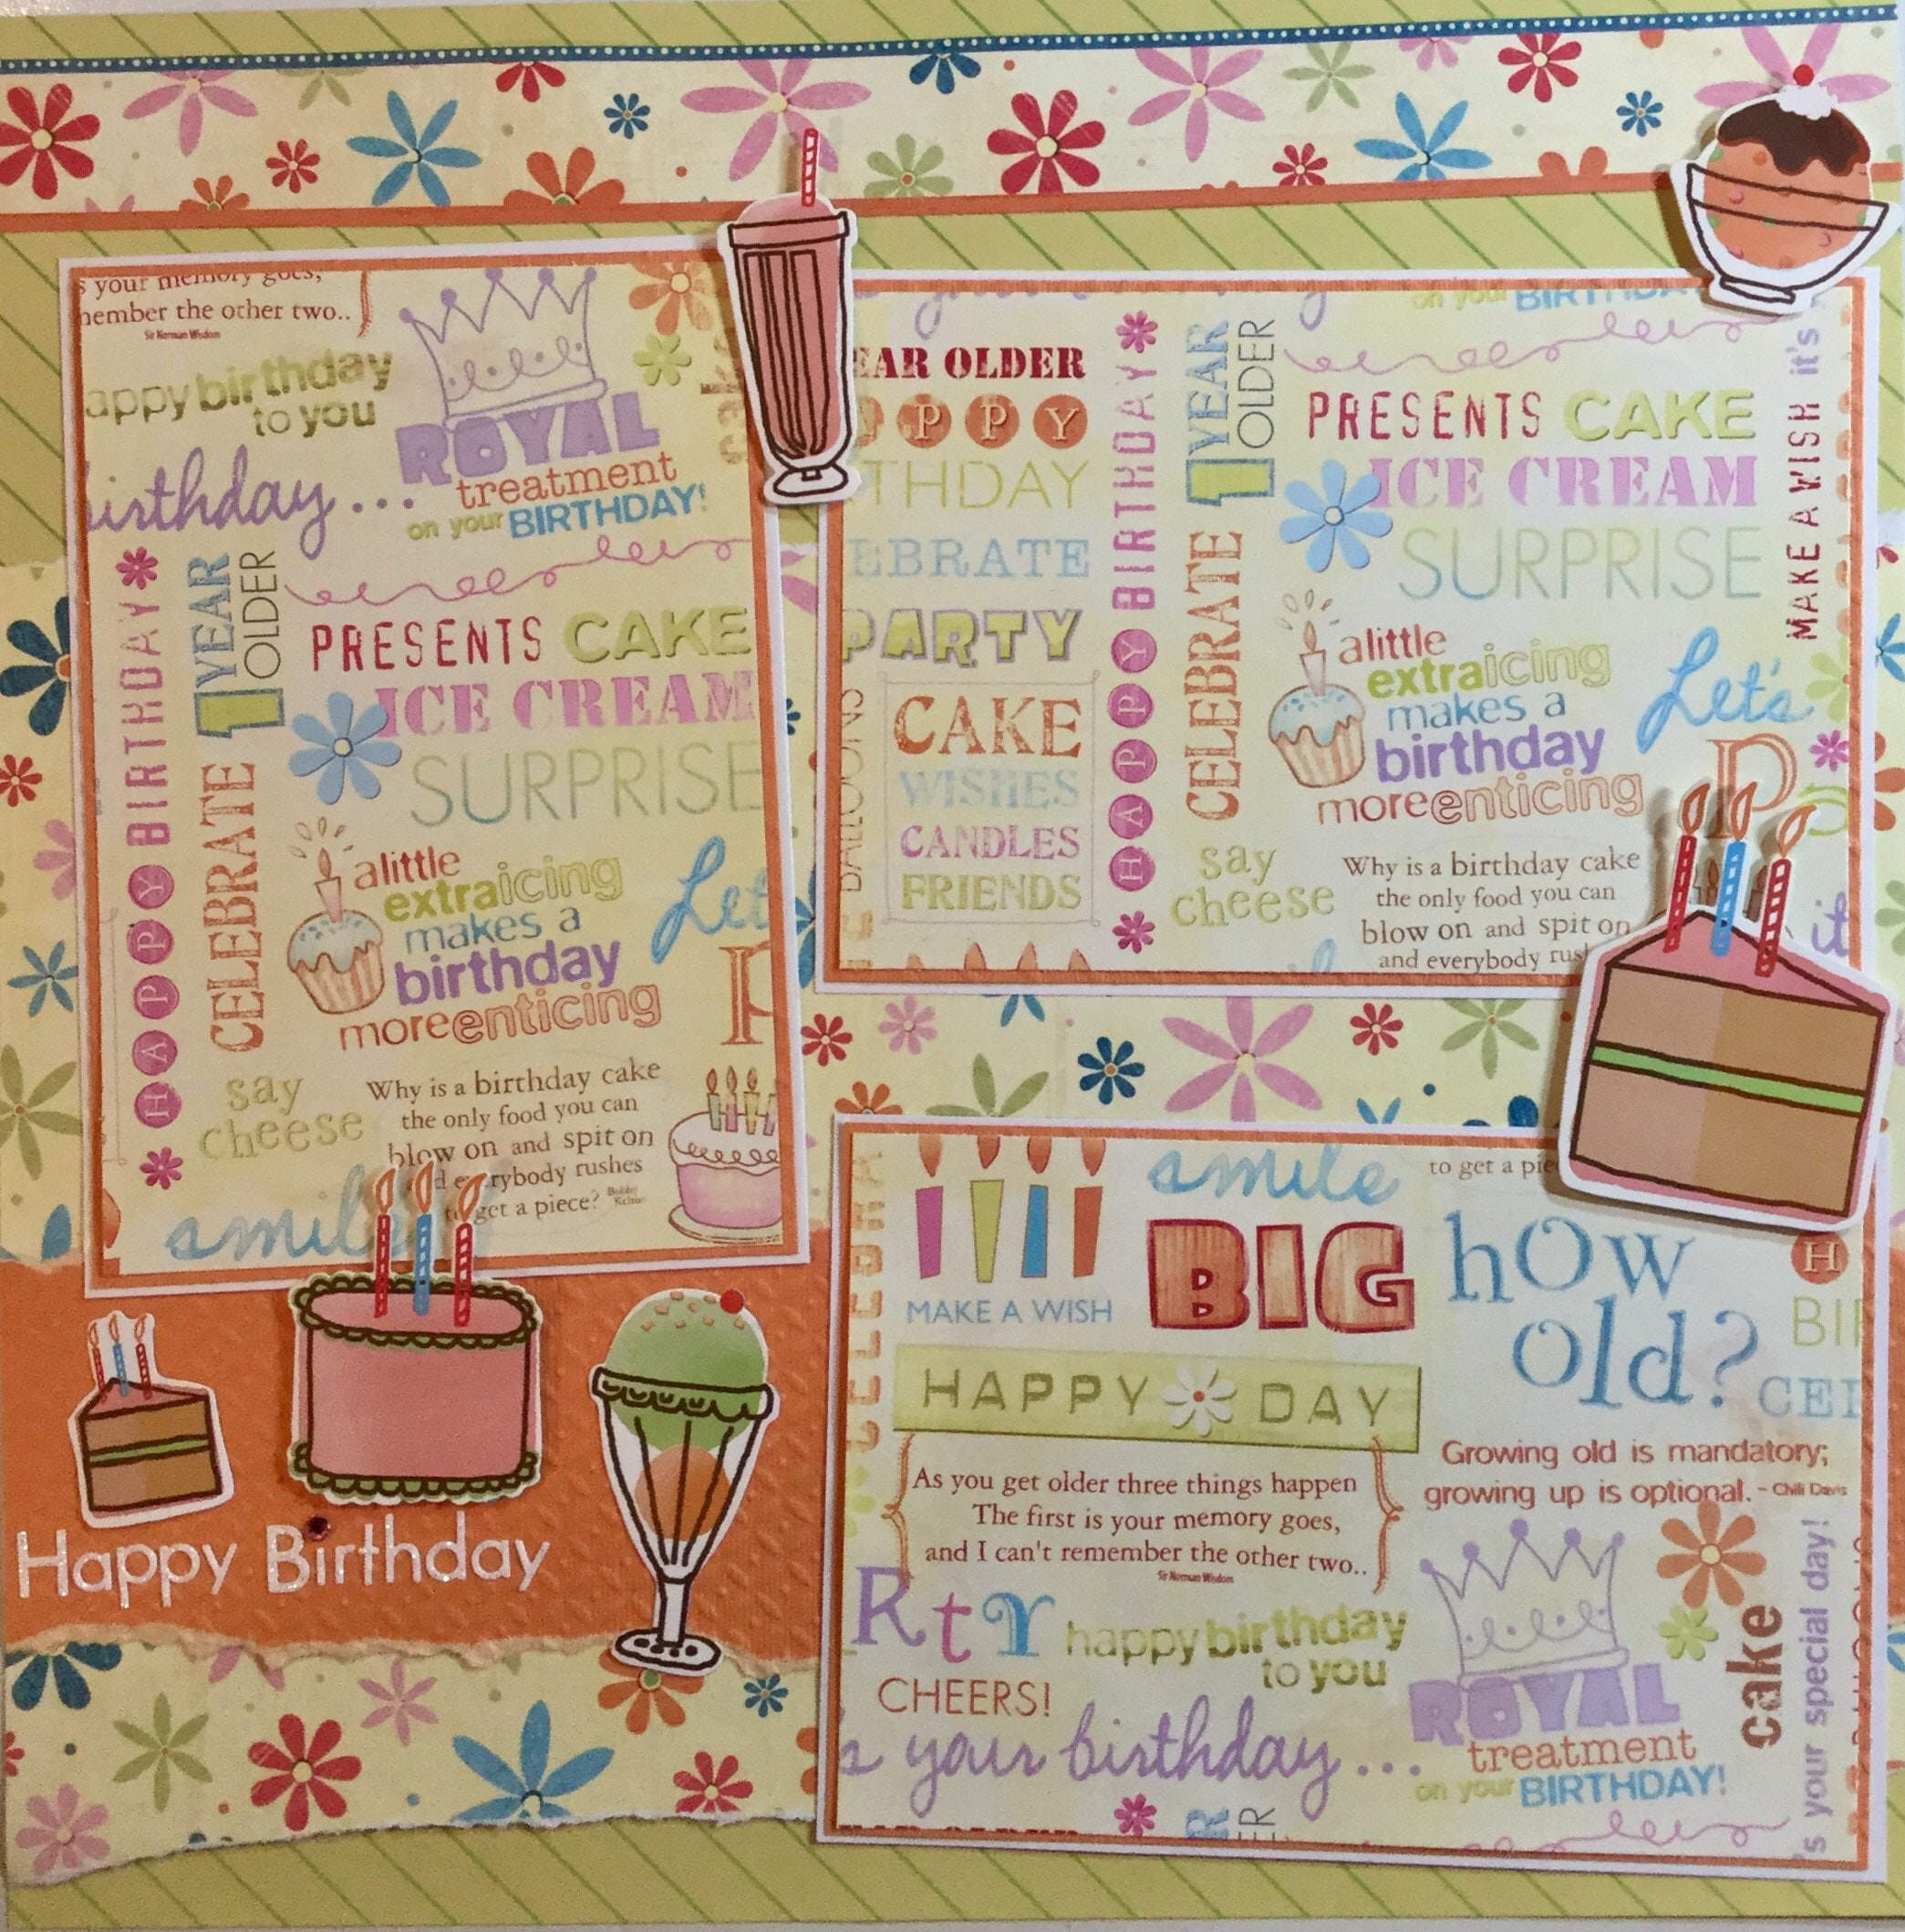 s your memory goes,
member the other two..
Sir Norman Wisdom
appy birthday
to you
birthday...
ROYAL
treatment
on your BIRTHDAY!
cake
HAPPY BIRTHDAY
CELEBRATE 1 YEAR
OLDER
PRESENTS CAKE
ICE CREAM
SURPRISE
a little
extra icing
makes a
birthday
more enticing
Let
P
say
cheese
Why is a birthday cake
the only food you can
blow on and spit on
d everybody rushes
to get a piece? Bobby
Kelton
smile
EAR OLDER
PPY
THDAY
EBRATE
PARTY
BALLOONS
CAKE
WISHES
CANDLES
FRIENDS
HAPPY BIRTHDAY
CELEBRATE 1 YEAR
OLDER
on your BIRTHDA
PRESENTS CAKE
ICE CREAM
SURPRISE
MAKE A WISH it's
a little
extra icing
makes a
birthday
more enticing
Let's
P
say
cheese
Why is a birthday cake
the only food you can
blow on and spit on
and everybody rus
it
CELEBRA
MAKE A WISH
smile
BIG
to get a pie
how
old?
H
BIR
CEL
HAPPY DAY
As you get older three things happen
The first is your memory goes,
and I can't remember the other two..
Sir Norman Wisdom
Growing old is mandatory;
growing up is optional. - Chili Davis
RtY
happy birthday
to you
CHEERS!
s your birthday...
ROYAL
treatment
on your BIRTHDAY!
cake
's your special day!
Happy Birthday